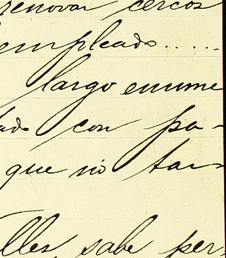 renovar cercos
empleado.....
largo enume
ado con pa-
que nó tan
lles, sabe per-